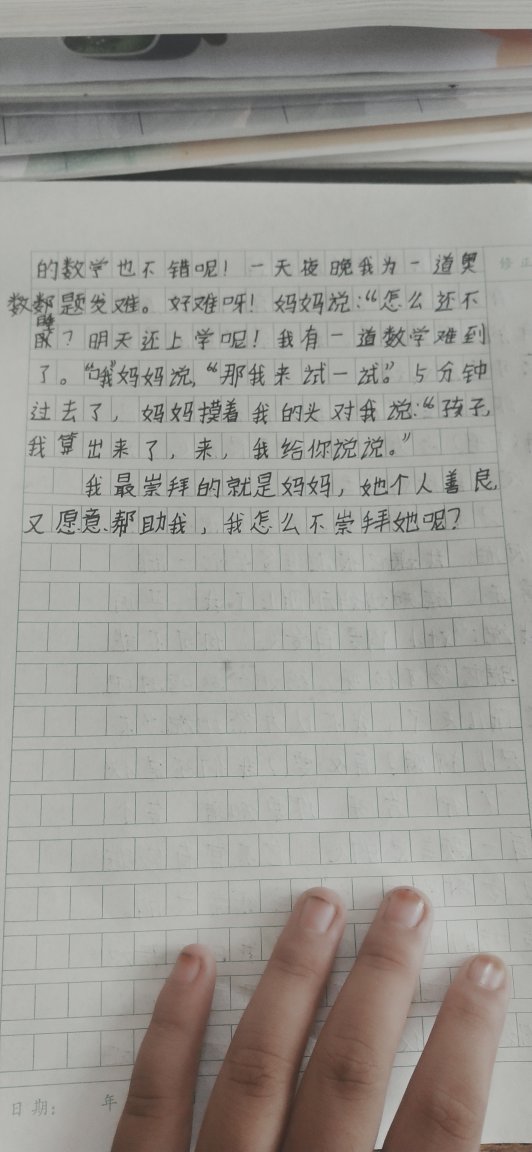 修正
的数学也不错呢！一天夜晚我为一道奥
数题发难。好难呀！妈妈说：“怎么还不
睡？明天还上学呢！我有一道数学难到
了。“哦”妈妈说，“那我来试一试。”5分钟
过去了，妈妈摸着我的头对我说：“孩子，
我算出来了，来，我给你说说。”
我最崇拜的就是妈妈，她个人善良
又愿意帮助我，我怎么不崇拜她呢？
日期： 年